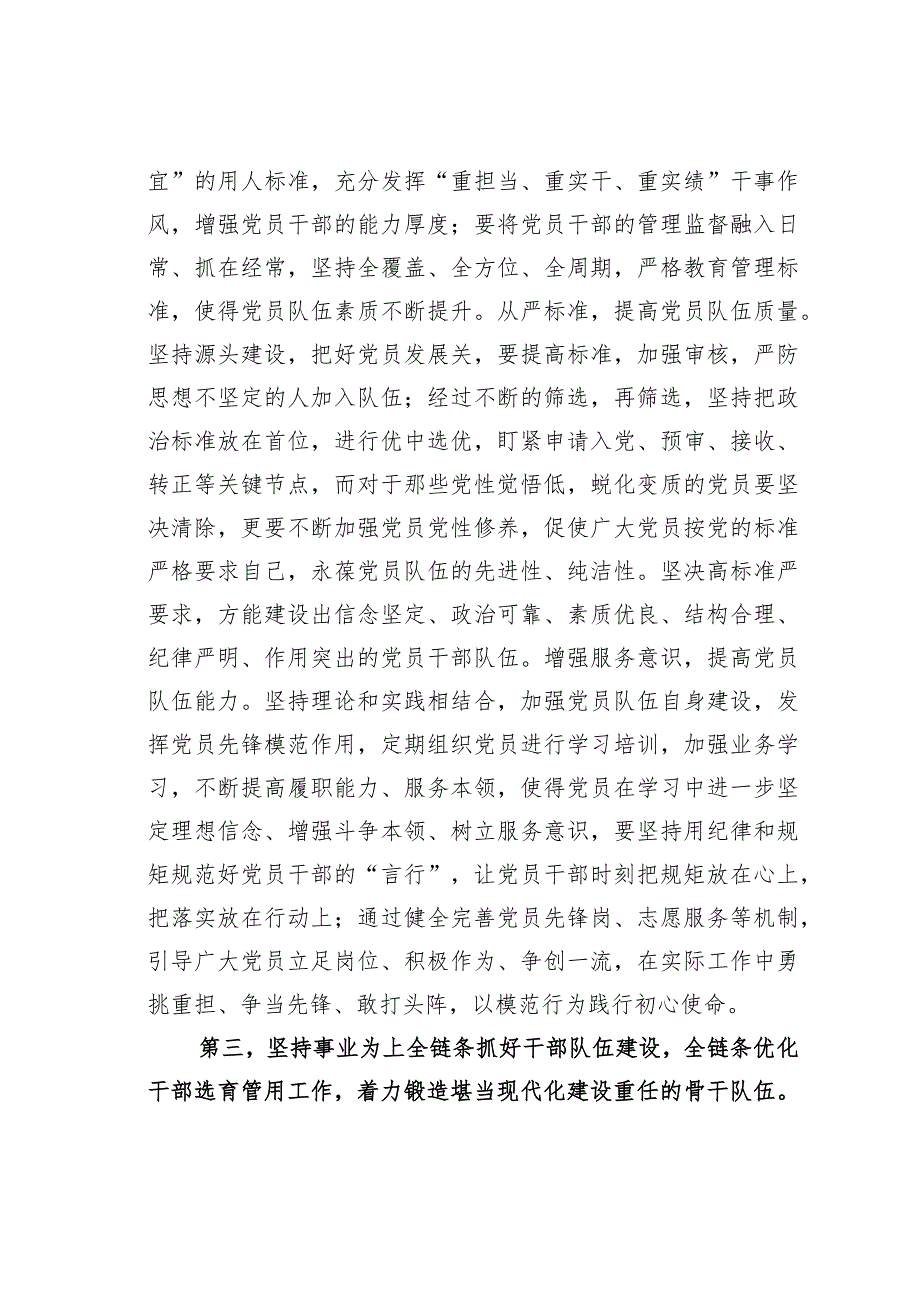 宜”的用人标准，充分发挥“重担当、重实干、重实绩”干事作
风，增强党员干部的能力厚度；要将党员干部的管理监督融入日
常、抓在经常，坚持全覆盖、全方位、全周期，严格教育管理标
准，使得党员队伍素质不断提升。从严标准，提高党员队伍质量。
坚持源头建设，把好党员发展关，要提高标准，加强审核，严防
思想不坚定的人加入队伍；经过不断的筛选，再筛选，坚持把政
治标准放在首位，进行优中选优，盯紧申请入党、预审、接收、
转正等关键节点，而对于那些党性觉悟低，蜕化变质的党员要坚
决清除，更要不断加强党员党性修养，促使广大党员按党的标准
严格要求自己，永葆党员队伍的先进性、纯洁性。坚决高标准严
要求，方能建设出信念坚定、政治可靠、素质优良、结构合理、
纪律严明、作用突出的党员干部队伍。增强服务意识，提高党员
队伍能力。坚持理论和实践相结合，加强党员队伍自身建设，发
挥党员先锋模范作用，定期组织党员进行学习培训，加强业务学
习，不断提高履职能力、服务本领，使得党员在学习中进一步坚
定理想信念、增强斗争本领、树立服务意识，要坚持用纪律和规
矩规范好党员干部的“言行”，让党员干部时刻把规矩放在心上，
把落实放在行动上；通过健全完善党员先锋岗、志愿服务等机制，
引导广大党员立足岗位、积极作为、争创一流，在实际工作中勇
挑重担、争当先锋、敢打头阵，以模范行为践行初心使命。
第三，坚持事业为上全链条抓好干部队伍建设，全链条优化
干部选育管用工作，着力锻造堪当现代化建设重任的骨干队伍。